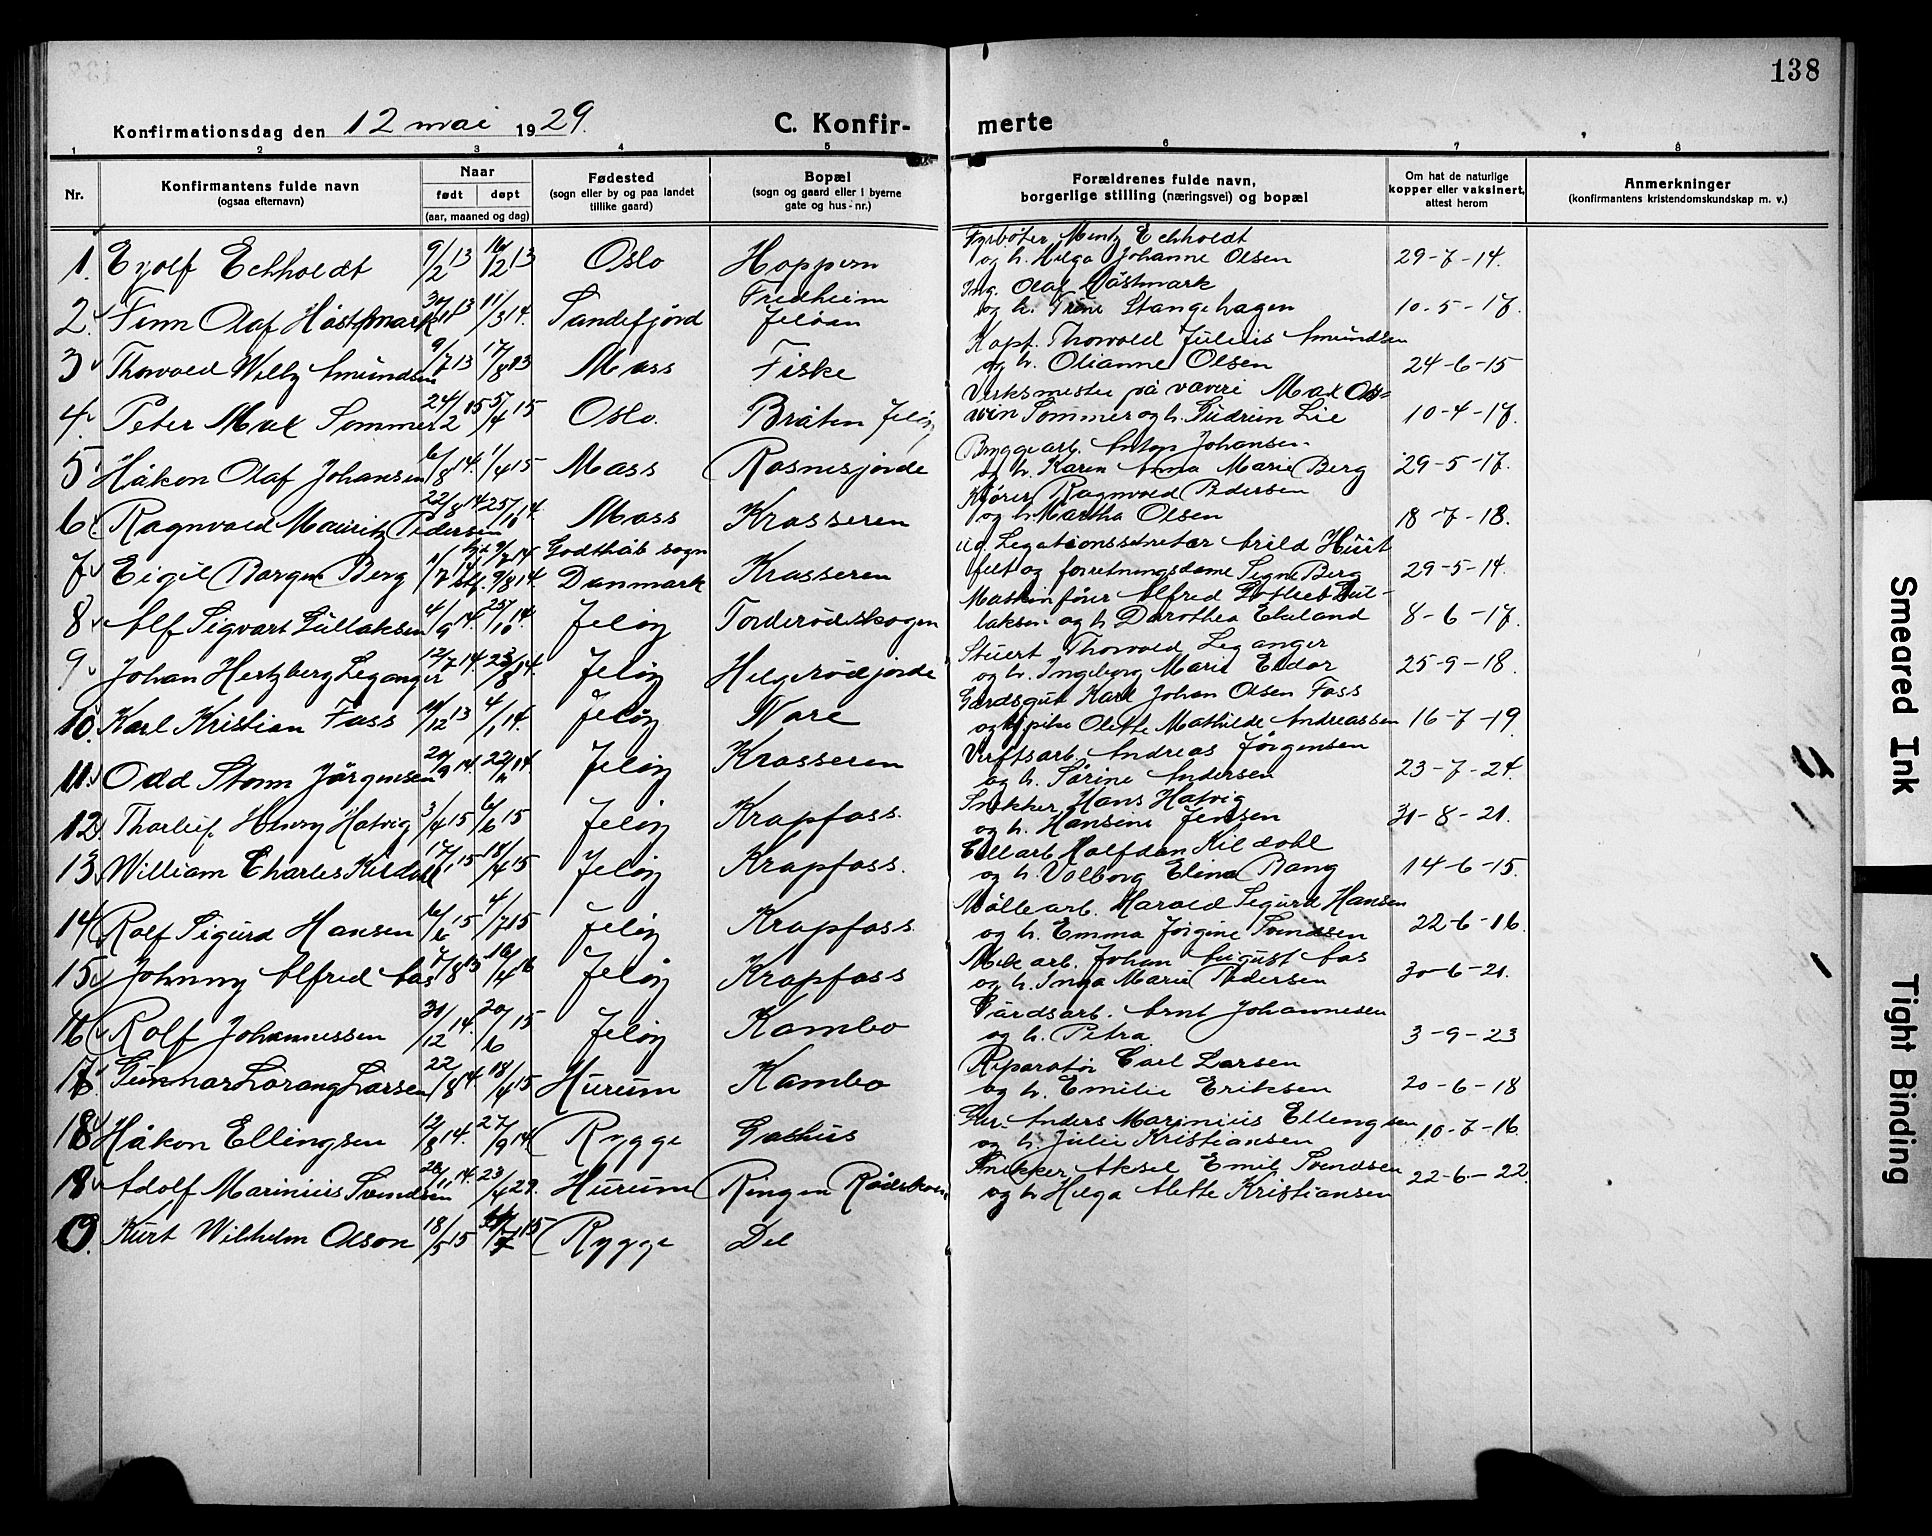 138
Konfirmationsdag den 12 mai 1929.
C. Konfir-
merte
1 2 3 4 5 6 7 8
Nr.
Konfirmantens fulde navn
(ogsaa efternavn)
Naar
født døpt
(aar, maaned og dag)
Fødested
(sogn eller by og paa landet
tillike gaard)
Bopæl
(sogn og gaard eller i byerne
gate og hus-nr.)
Forældrenes fulde navn,
borgerlige stilling (næringsvei) og bopæl
Om hat de naturlige
kopper eller vaksinert,
attest herom
Anmerkninger
(konfirmantens kristendomskundskap m. v.)
1. Eyolf Echholdt 9/2 13 Oslo Hoppern
Fyrbøter Mentz Echholdt
og h. Helga Johanne Olsen 29-7-14.
2. Finn Olaf Høstmark 11/3 14. Sandefjord Fredheim
Jeløen
Ing. Olaf Høstmark
og h. Trine Stangehagen 10-5-17.
3 Thorvald Willy Amundsen 9/7 13 17/8 13 Moss Fiske
Kapt. Thorvald Julius Amundsen
og h. Olianne Olsen 24-6-15
4. Peter Max Sommer 24/2 15 5/4 15 Oslo. Bråten Jeløy
Verksmester på væveri Max Os-
win Sommer og h. Gudrun Lie 10-4-17.
5 Håkon Olaf Johansen 6/8 14. 1/4 15 Moss Rosnesjorde
Bryggearb. Anton Johansen
og h. Karen Anna Marie Berg 29-5-17.
6. Ragnvald Mauritz Pedersen 22/8 14 25/10 14. Moss Krosseren
Kjører Ragnvald Pedersen
og h. Martha Olsen 18-7-18.
7 Eigil Borgen Berg 1/7 9/7 14 9/8 14 Godthåb sogn
Danmark Krosseren
Legationssekretær Arild Huit
felt og forretningsdame Signe Berg 29-5-14.
8 Alf Sigvart Gullaksen 4/9 14. 25/10 14. Jeløy Torderødskogen
Maskinfører Alfred Gul-
laksen og h Dorothea Ekeland 8-6-17.
9 Johan Hertzberg Leganger 12/7 14. 23/8 14. Jeløy Helgerødjorde
Stuert Thorvald Leganger
og h. Ingeborg Marie Eidor 25-9-18.
10. Karl Kristian Foss 4/1 14. Jeløy Nore
Gårdsgut Karl Johan Olsen Foss
og pike Olefte Mathilde Andreassen 16-7-19
11. Odd Storm Jørgensen 20/9 14. 22/11 14. Jeløy Krosseren
Verftsarb. Andreas Jørgensen
og h. Sørine Andersen 23-7-24.
12 Thorleif Henry Hotvig 3/4 15 6/6 15 Jeløy Krapfoss.
Snekker Hans Hotvig
og h. Hansine Jensen 31-8-21.
13 William Charles Kildahl 17/1 15 18/4 15 Jeløy Krapfoss.
Cellarb. Halfdan Kildahl
og h. Valborg Elina Bang 14-6-15.
14 Rolf Sigurd Hansen 6/6 15 4/7 15 Jeløy Krapfoss
Møllearb. Harald Sigurd Hansen
og h. Emma Jørgine Svendsen 22-6-16.
15 Johnny Alfred Aas Jeløy Krapfoss
Mek arb. Johan August Aas
og h. Inga Marie Pedersen 30-6-21.
16 Rolf Johannessen 31/12 14. 20/6 15 Jeløy Kambo
Gårdsarb. Arnt Johannesen
og h. Petra 3-9-23
17 Gunnar Lorang Larsen 22/8 14. 18/4 15 Hurum Kambo
Reparatør Carl Larsen
og h. Emilie Eriksen 20-6-18
18 Håkon Ellingsen 12/8 14. 27/9 14 Rygge Gashus
Anders Marinius Ellengsen
og h. Julie Kristiansen 10-7-16
18 Adolf Marinius Svendsen 28/11 14. 23/4 29. Hurum Ringen Rødskoven
Snekker Aksel Emil Svendsen
og h Helga Alette Kristiansen 22-6-22.
O. Kurt Wilhelm Olson 18/5 15 Rygge Del
Smeared Ink
Tight Binding